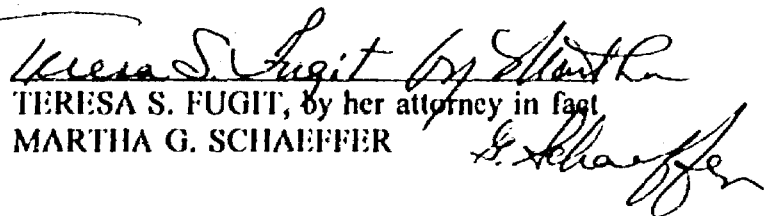 Teresa S. Fugit by Martha
G. Schaeffer
TERESA S. FUGIT, by her attorney in fact
MARTHA G. SCHAEFFER